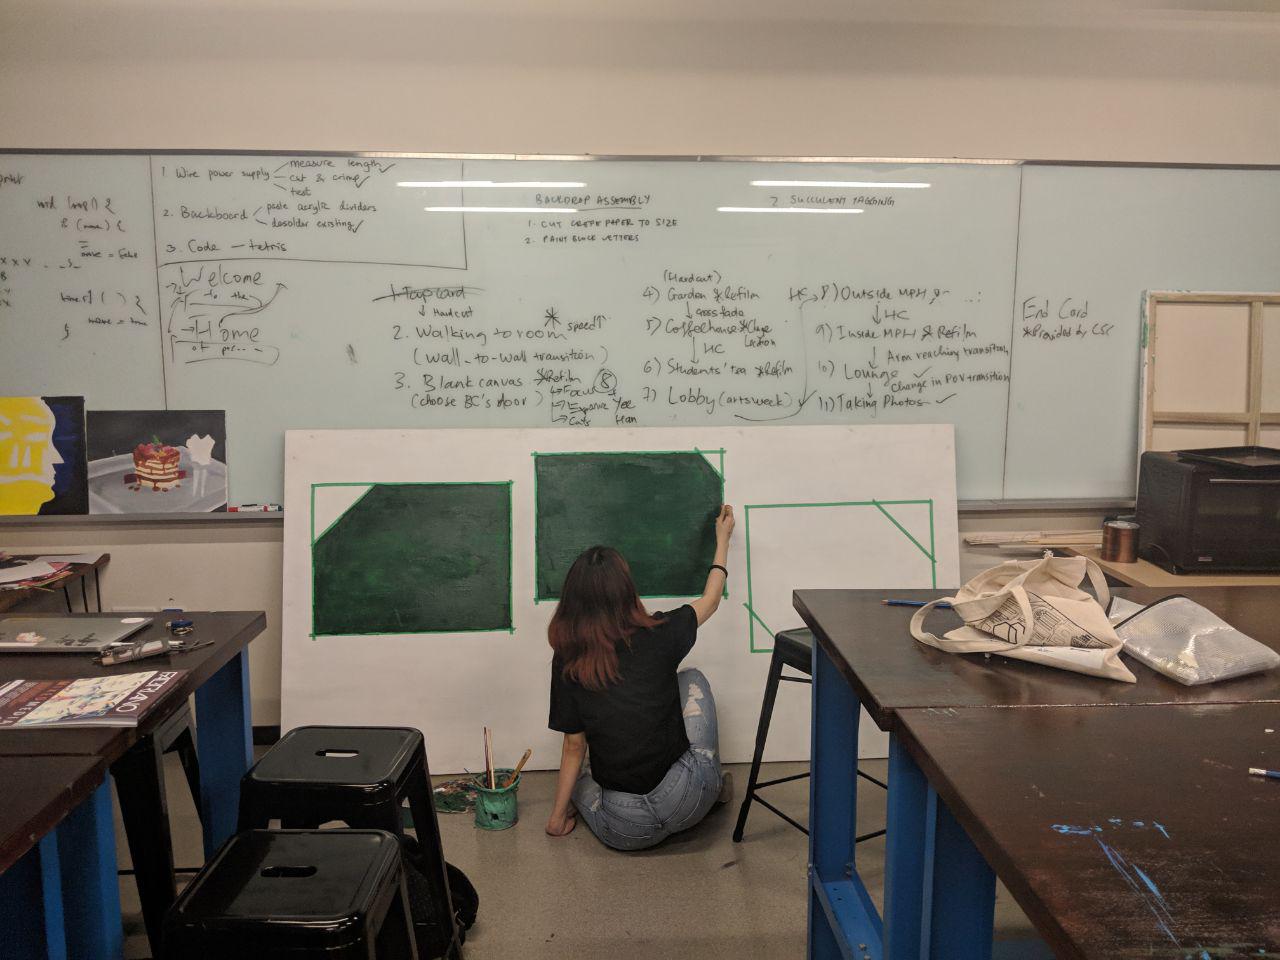 void loop() {
1. Wire power supply
measure length
cut & crimp
test
2. Backboard
paste acrylic dividers
desolder existing
3. Code – tetris
Welcome
to the
Home
of
BACKDROP ASSEMBLY
1. CUT CREPE PAPER TO SIZE
2. PAINT BLOCK LETTERS
? SUCCULENT TAGGING
Hardcut
2. Walking to room * speed↑
(wall-to-wall transition)
3. Blank canvas *Refilm 8
(choose BC's door)
Focus
Exposure
Cuts
(Hardcut)
4) Garden *Refilm
cross fade
5) Coffeehouse
HC
6) Students' tea *Refilm
7) Lobby (artsweek)
HC
8.) Outside MPH
HC
9) Inside MPH *Refilm
Arm reaching transition
10) Lounge
Change in POV transition
11) Taking Photos
End Card
*Provided by CSC